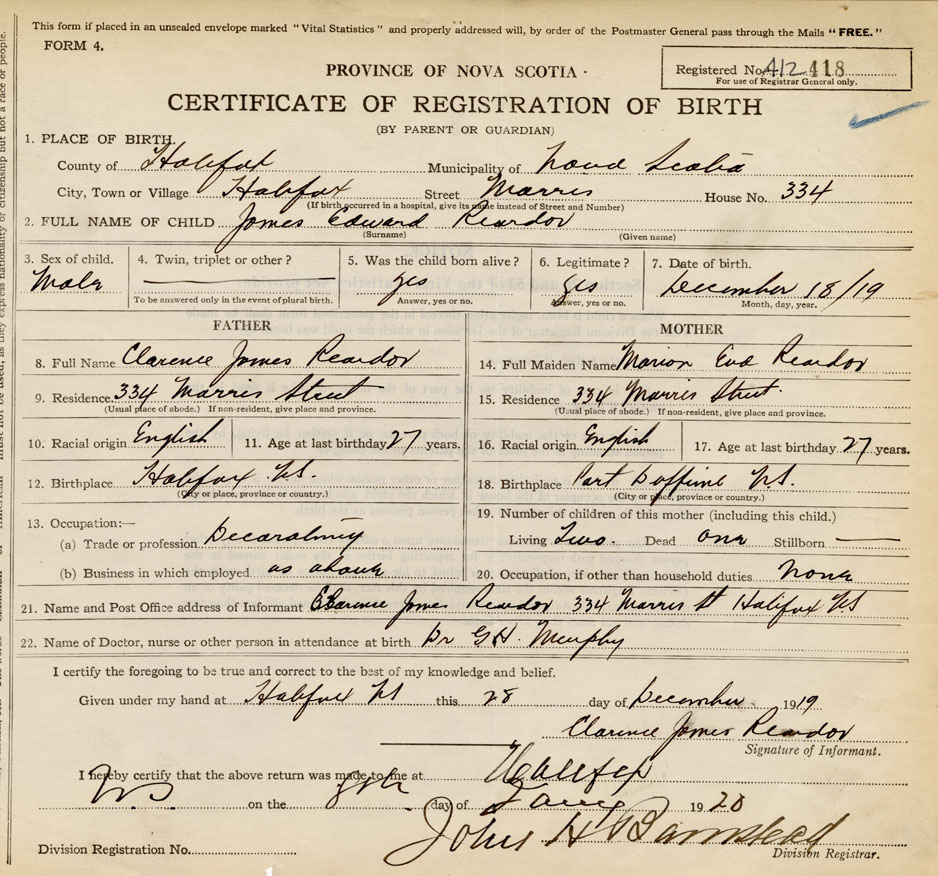 This form if placed in an unsealed envelope marked "Vital Statistics" and properly addressed will, by order of the Postmaster General pass through the Mails "FREE."
FORM 4.
Registered No. 412 418
For use of Registrar General only.
PROVINCE OF NOVA SCOTIA
CERTIFICATE OF REGISTRATION OF BIRTH
(BY PARENT OR GUARDIAN)
1. PLACE OF BIRTH.
County of Halifax Municipality of Nova Scotia
City, Town or Village Halifax Street Morris House No. 334
(If birth occurred in a hospital, give its name instead of Street and Number)
2. FULL NAME OF CHILD James Edward Reardon
(Surname) (Given name)
3. Sex of child. 4. Twin, triplet or other? 5. Was the child born alive? 6. Legitimate? 7. Date of birth.
Male yes yes December 18/19
To be answered only in the event of plural birth. Answer, yes or no. Answer, yes or no. Month, day, year.
FATHER
8. Full Name Clarence James Reardon
9. Residence. 334 Morris Street
(Usual place of abode.) If non-resident, give place and province.
10. Racial origin English 11. Age at last birthday 27 years.
12. Birthplace Halifax N.S.
(City or place, province or country.)
13. Occupation:—
(a) Trade or profession Decorating
(b) Business in which employed as above
MOTHER
14. Full Maiden Name Marion Eva Reardon
15. Residence 334 Morris Street
(Usual place of abode.) If non-resident, give place and province.
16. Racial origin English 17. Age at last birthday 27 years.
18. Birthplace Port N.S.
(City or place, province or country.)
19. Number of children of this mother (including this child.)
Living Two. Dead one Stillborn
20. Occupation, if other than household duties none
21. Name and Post Office address of Informant Clarence James Reardon 334 Morris St Halifax NS
22. Name of Doctor, nurse or other person in attendance at birth Dr G.H. Murphy
I certify the foregoing to be true and correct to the best of my knowledge and belief.
Given under my hand at Halifax NS this 28 day of December 1919
Clarence James Reardon
Signature of Informant.
I hereby certify that the above return was made to me at Halifax
N.S. on the day of Jany 1920
John H Barnstead
Division Registration No. Division Registrar.